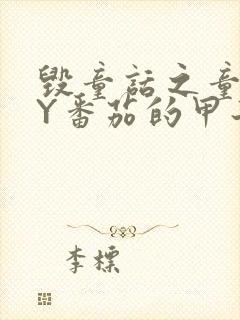 毁童话之童
Y番茄的甲
李标